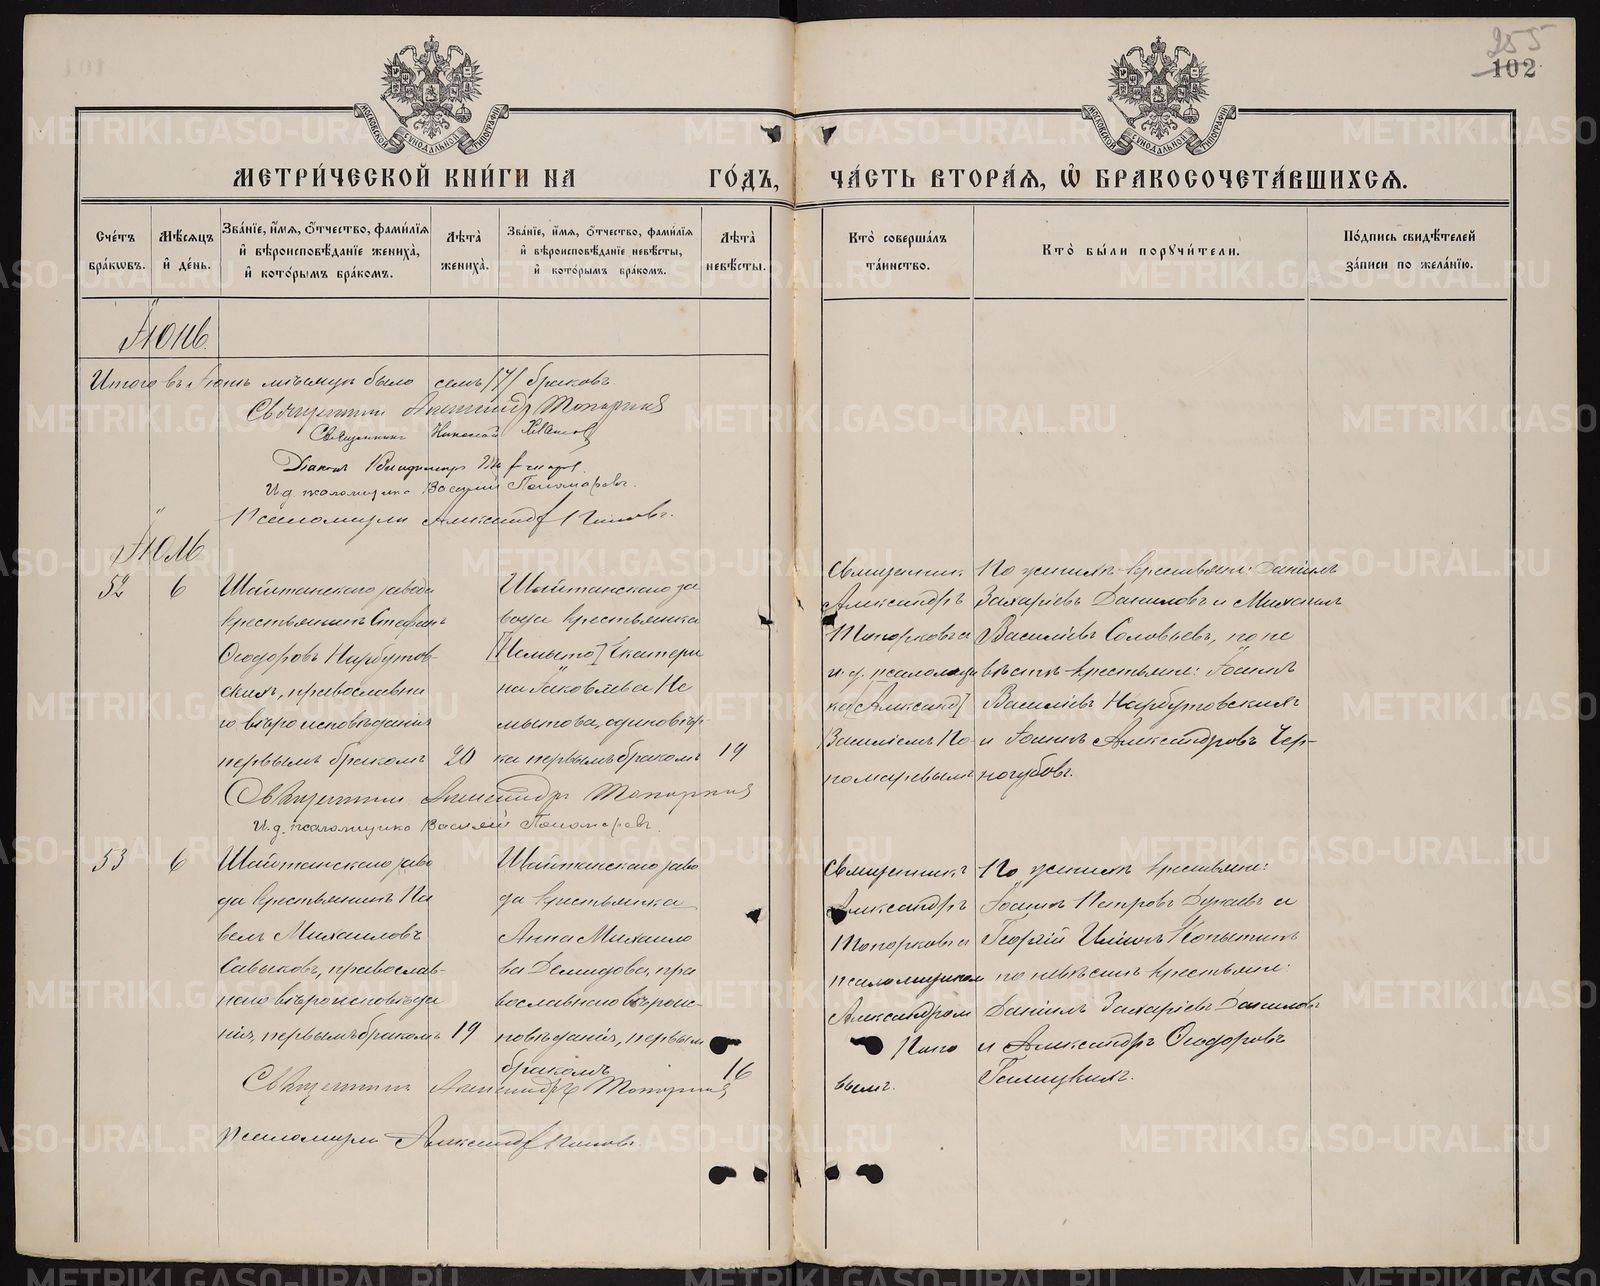 255
102
МЕТРИ́ЧЕСКОЙ КНИ́ГИ НА ГО́ДЪ, ЧА́СТЬ ВТОРА́Я, Ѿ БРАКОСОЧЕТА́ВШИХСЯ.
Сче́тъ бра́кѡвъ.
Мѣ́сяцъ и́ де́нь.
Зва́нїе, и́мя, ѻ́тчество, фами́лїя и́ вѣроисповѣ́данїе жениха̀, и́ кото́рымъ бра́комъ.
Лѣта̀ жениха̀.
Зва́нїе, и́мя, ѻ́тчество, фами́лїя и́ вѣроисповѣ́данїе невѣ́сты, и́ кото́рымъ бра́комъ.
Лѣта̀ невѣ́сты.
Кто̀ соверша́лъ та́инство.
Кто̀ бы́ли порꙋчи́тели.
По́дпись свидѣ́телей за́писи по жела́нїю.
Іюнь.
Итого въ Іюнѣ мѣсяцѣ было семь /7/ браковъ.
Священникъ Александръ Топорковъ
Священникъ Николай
Діаконъ Владимиръ
И.д. псаломщика Василій Пономаревъ.
Псаломщикъ Александръ Поповъ.
Іюль
52
6
Шайтанскаго завода
крестьянинъ Стефанъ
Ѳеодоровъ Нарбутов-
скихъ, православна
го вѣроисповѣданія
первымъ бракомъ
20
Шайтанскаго за
вода крестьянка
[Немыто] Екатери
на Іаковлева Не
мытова, единовѣр
ка первымъ бракомъ
19
Священник
Александръ
Топорковъ и
и.д. псаломщи
ка [Александ]
Василіемъ По
номаревымъ
По женихѣ крестьяне: Даніилъ
Захаріевъ Даниловъ и Михаилъ
Василіевъ Соловьевъ, по не
вѣстѣ крестьяне: Іоаннъ
Василіевъ Нарбутовскихъ
и Іоаннъ Александровъ Чер-
ногубовъ.
Священникъ Александръ Топорковъ
И.д. псаломщика Василій Пономаревъ.
53
6
Шайтанскаго заво
да крестьянинъ Па
велъ Михаиловъ
Савыковъ, православ-
наго вѣроисповѣда
нія, первымъ бракомъ
19
Шайтанскаго заво
да крестьянка
Анна Михаило
ва Демидова, пра
вославнаго вѣроис-
повѣданія, первым
бракомъ
16
Священникъ
Александръ
Топорковъ и
псаломщиком
Александром
Попо
вымъ.
По женихѣ крестьяне:
Іоаннъ Петровъ Дунаевъ и
Георгій Иліинъ Копытинъ
по невѣстѣ крестьяне:
Даніилъ Захаріевъ Даниловъ
и Александръ Ѳеодоровъ
Галицкихъ.
Священникъ Александръ Топорковъ
Псаломщикъ Александръ Поповъ.